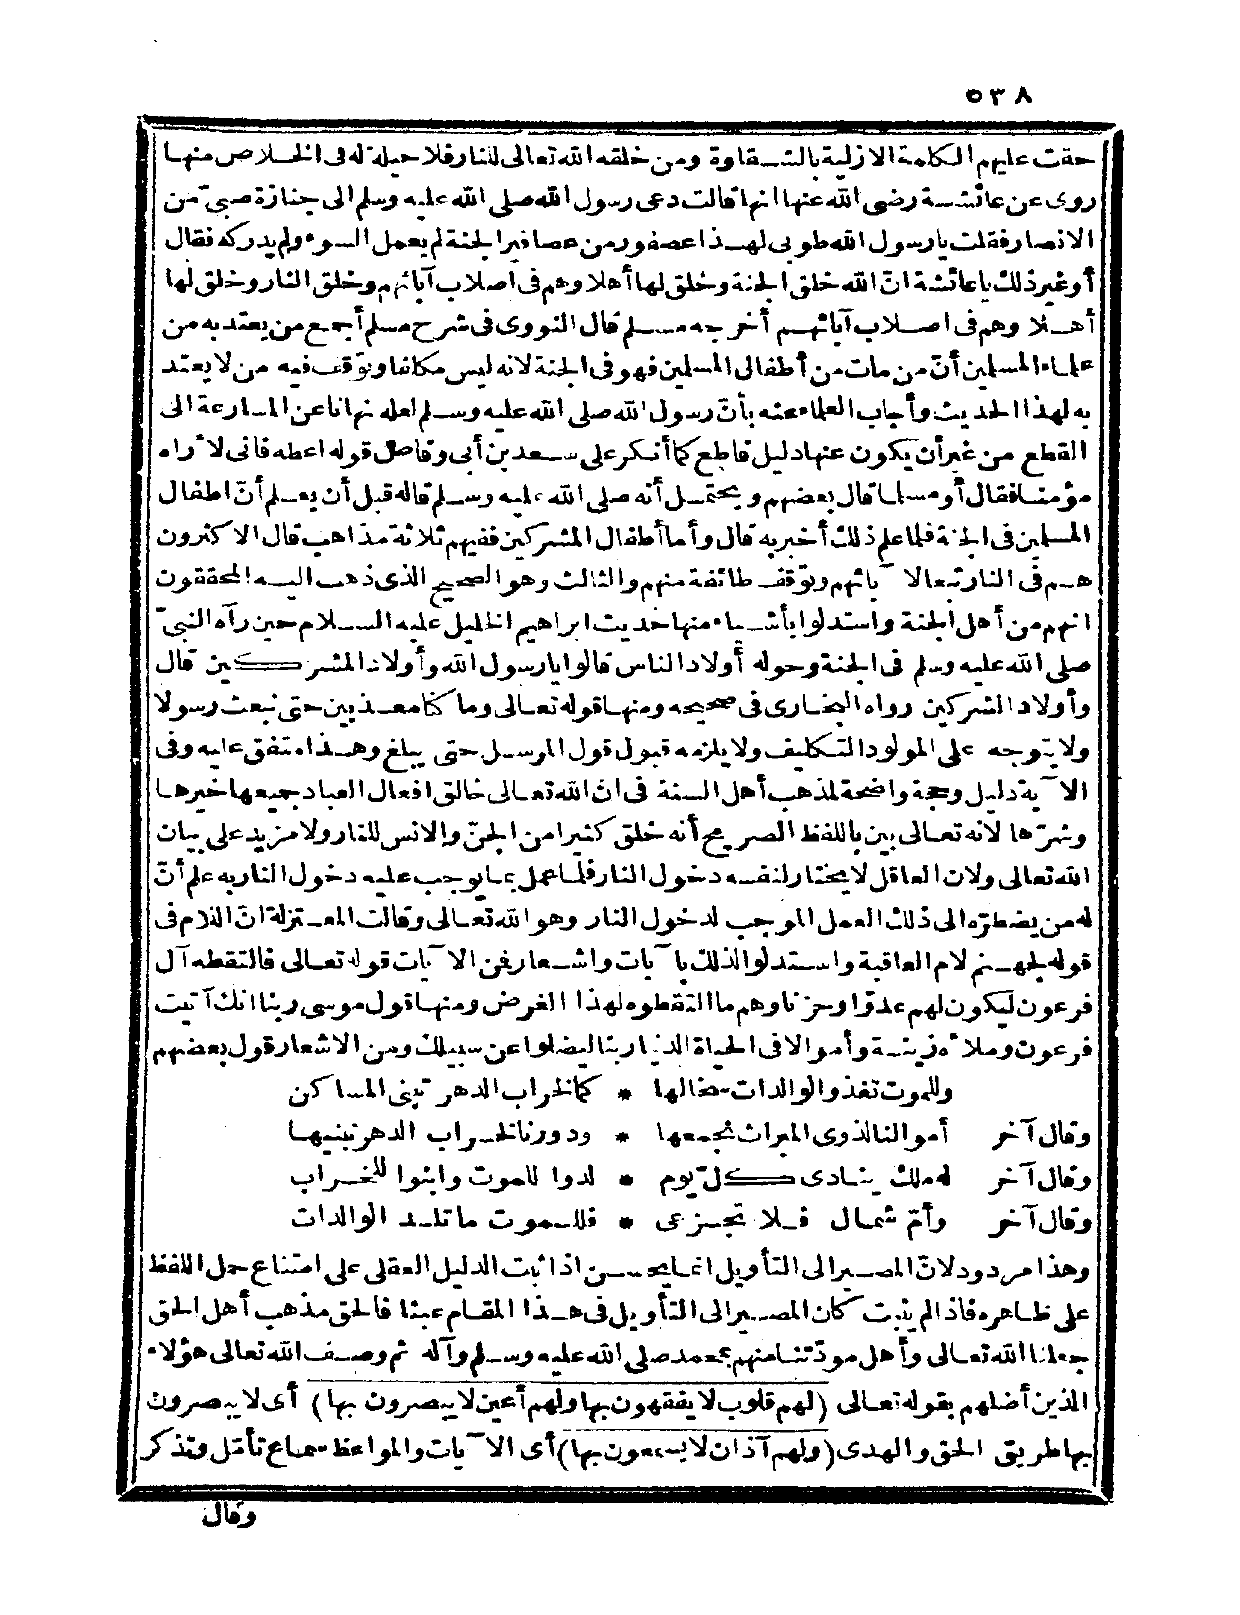 ٥٣٨
حقت عليهم الكلمة الازلية بالشقاوة ومن خلقه الله تعالى للنار فلا حيلة له فى الخلاص منها
روى عن عائشة رضى الله عنها انها قالت دعى رسول الله صلى الله عليه وسلم الى جنازة صبىّ من
الانصار فقلت يا رسول الله طوبى لهذا عصفور من عصافير الجنة لم يعمل السوء ولم يدركه فقال
أوغير ذلك يا عائشة انّ الله خلق الجنة وخلق لها أهلا وهم فى اصلاب آبائهم وخلق النار وخلق لها
أهلا وهم فى اصلاب آبائهم أخرجه مسلم قال النووى فى شرح مسلم أجمع من يعتد به من
علماء المسلمين أنّ من مات من أطفال المسلمين فهو فى الجنة لانه ليس مكلفا وتوقف فيه من لا يعتد
به لهذا الحديث وأجاب العلماء عنه بأنّ رسول الله صلى الله عليه وسلم لعله نهانا عن المسارعة الى
القطع من غير أن يكون عنها دليل قاطع كما أنكر على سعد بن أبى وقاص قوله اعطه فانى لاٴراه
مؤمنا فقال أو مسلما قال بعضهم ويحتمل أنه صلى الله عليه وسلم قاله قبل أن يعلم أنّ اطفال
المسلمين فى الجنة فلما علم ذلك أخبر به قال وأما أطفال المشركين ففيهم ثلاثة مذاهب قال الاكثرون
هم فى النار تبعا لآبائهم وتوقف طائفة منهم والثالث وهو الصحيح الذى ذهب اليه المحققون
انهم من أهل الجنة واستدلوا بأشياء منها حديث ابراهيم الخليل عليه السلام حين رآه النبىّ
صلى الله عليه وسلم فى الجنة وحوله أولاد الناس قالوا يا رسول الله وأولاد المشركين قال
وأولاد المشركين رواه البخارى فى صحيحه ومنها قوله تعالى وما كنا معذبين حتى نبعث رسولا
ولا يتوجه على المولود التكليف ولا يلزمه قبول قول المرسل حتى يبلغ وهذا متفق عليه وفى
الآية دليل وحجة واضحة لمذهب أهل السنة فى انّ الله تعالى خالق افعال العباد جميعها خيرها
وشرّها لانه تعالى بين باللفظ الصريح أنه خلق كثيرا من الجنّ والانس للنار ولا مزيد على بيان
الله تعالى ولان العاقل لا يختار لنفسه دخول النار فلما عمل بما يوجب عليه دخول النار به علم أنّ
له من يضطرّه الى ذلك العمل الموجب لدخول النار وهو الله تعالى وقالت المعتزلة انّ اللام فى
قوله لجهنم لام العاقبة واستدلوا لذلك بآيات واشعار فمن الآيات قوله تعالى فالتقطه آل
فرعون ليكون لهم عدوّا وحزنا وهم ما التقطوه لهذا الغرض ومنها قول موسى ربنا انك آتيت
فرعون وملاٴه زينة وأموالا فى الحياة الدنيا ربنا ليضلوا عن سبيلك ومن الاشعار قول بعضهم
وللموت تغذو الوالدات سخالها * كما لخراب الدهر تبنى المساكن
وقال آخر أموالنا لذوى الميراث نجمعها * ودورنا لخراب الدهر نبنيها
وقال آخر له ملك ينادى كل يوم * لدوا للموت وابنوا للخراب
وقال آخر وأمّ سماك فلا تجزعى * فللموت ما تلد الوالدات
وهذا مردود لانّ المصير الى التأويل انما يحسن اذا ثبت الدليل العقلى على امتناع حمل اللفظ
على ظاهره فاذا لم يثبت كان المصير الى التأويل فى هذا المقام عبثا فالحق مذهب أهل الحق
جعلنا الله تعالى وأهل مودّتنا منهم بمحمد صلى الله عليه وسلم وآله ثم وصف الله تعالى هؤلاء
الذين أضلهم بقوله تعالى (لهم قلوب لا يفقهون بها ولهم أعين لا يبصرون بها) أى لا يبصرون
بها طريق الحق والهدى (ولهم آذان لا يسمعون بها) أى الآيات والمواعظ سماع تأمّل وتذكر
وقال